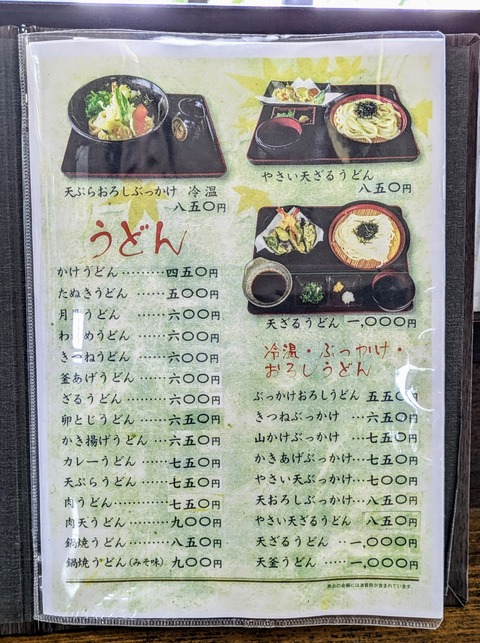 天ぷらおろしぶっかけ 冷温
八五〇円
やさい天ざるうどん
八五〇円
天ざるうどん 一,〇〇〇円
うどん
かけうどん ……… 四五〇円
たぬきうどん …… 五〇〇円
月見うどん …… 六〇〇円
わかめうどん …… 六〇〇円
きつねうどん …… 六〇〇円
釜あげうどん …… 六〇〇円
ざるうどん …… 六〇〇円
卵とじうどん …… 六五〇円
かき揚げうどん … 六五〇円
カレーうどん …… 七五〇円
天ぷらうどん …… 七五〇円
肉うどん ……… 七五〇円
肉天うどん …… 九〇〇円
鍋焼うどん …… 八五〇円
鍋焼うどん(みそ味) 九〇〇円
冷温・ぶっかけ・
おろしうどん
ぶっかけおろしうどん 五五〇円
きつねぶっかけ … 六五〇円
山かけぶっかけ … 七五〇円
かきあげぶっかけ … 七五〇円
やさい天ぶっかけ … 七〇〇円
天おろしぶっかけ … 八五〇円
やさい天ざるうどん 八五〇円
天ざるうどん … 一,〇〇〇円
天釜うどん …… 一,〇〇〇円
表示の金額には消費税が含まれています。